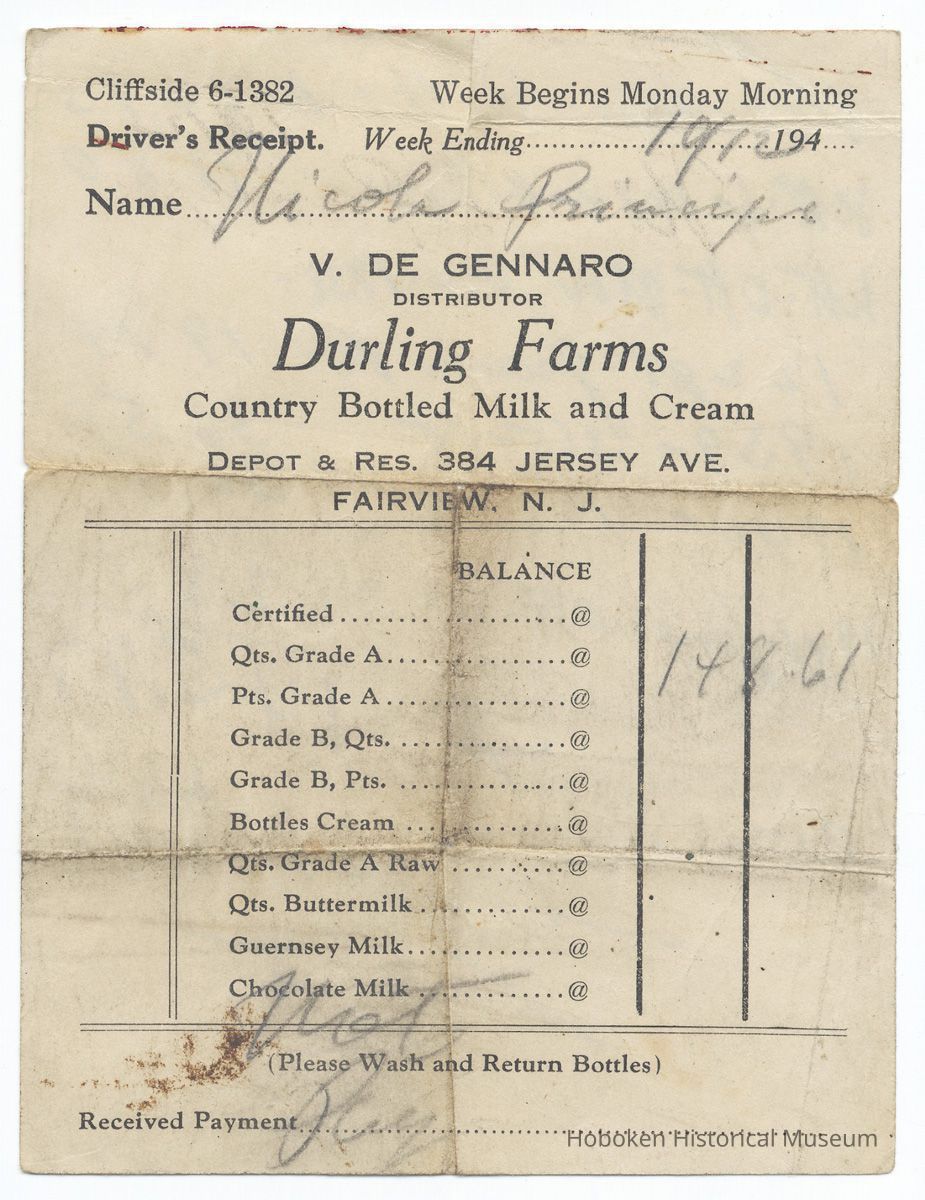 Cliffside 6-1382 Week Begins Monday Morning
Driver's Receipt. Week Ending.....................10/12....194....
Name Nicola Principe
V. DE GENNARO
DISTRIBUTOR
Durling Farms
Country Bottled Milk and Cream
DEPOT & RES. 384 JERSEY AVE.
FAIRVIEW, N. J.
BALANCE
Certified ........................@
Qts. Grade A...................@ 148.61
Pts. Grade A...................@
Grade B, Qts. .................@
Grade B, Pts. .................@
Bottles Cream ................@
Qts. Grade A Raw ...........@
Qts. Buttermilk...............@
Guernsey Milk................@
Chocolate Milk ..............@
Not
(Please Wash and Return Bottles)
Received Payment..........................................
Hoboken Historical Museum